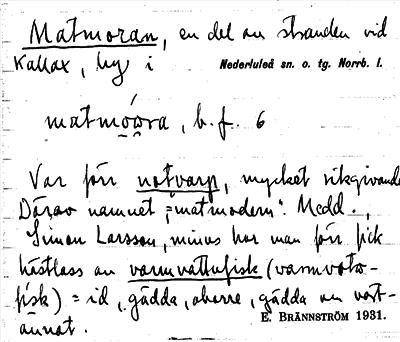 Matmoran, en del av stranden vid
Kallax, by i Nederluleå sn. o. tg. Norrb. l.
matmòo̯ra, b.f. 6
Var förr notvarp, mycket rikgivande
Därav namnet "matmodern". Medd.,
Simon Larsson, minns hur man förr fick
hästlass av varmvattufisk (varmvatw-
fisk) = id, gädda, aborre, gädda m
annat.
E. BRÄNNSTRÖM 1931.